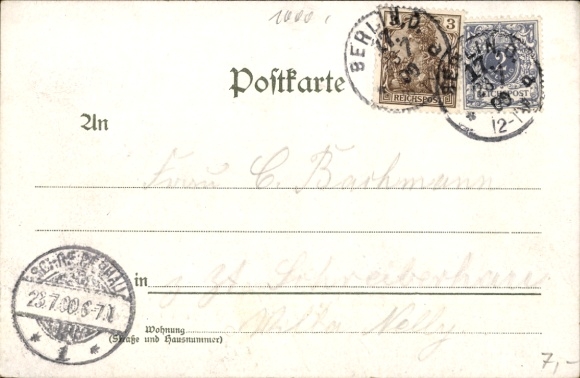 1000,
Postkarte
BERLIN, O.
17
3
REICHSPOST
BERLIN, O.
17
2
12-1
An
Frau C. Bachmann
in z. Zt. Schreiberhau
Villa Nelly
Wohnung
(Straße und Hausnummer)
SCHREIBERHAU
23.7.00.6-7.N
1
7,-